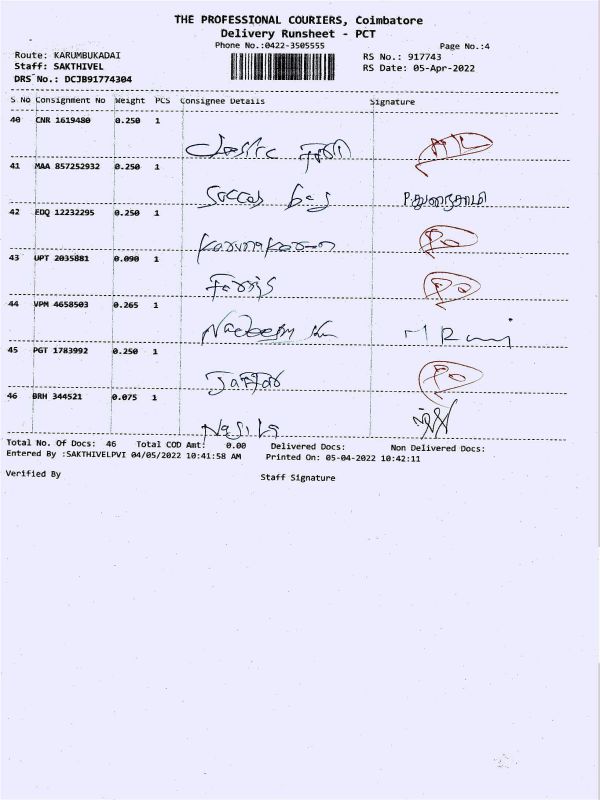 THE PROFESSIONAL COURIERS, Coimbatore
Delivery Runsheet - PCT
Phone No.:0422-3505555 Page No.:4
Route: KARUMBUKADAI RS No.: 917743
Staff: SAKTHIVEL RS Date: 05-Apr-2022
DRS No.: DCJB91774304
S No Consignment No Weight PCS Consignee Details Signature
40 CNR 1619480 0.250 1
41 MAA 857252932 0.250 1
42 EDQ 12232295 0.250 1
Karunakaran
43 UPT 2035881 0.090 1
44 VPM 4658503 0.265 1
45 PGT 1783992 0.250 1
46 BRH 344521 0.075 1
Total No. Of Docs: 46 Total COD Amt: 0.00 Delivered Docs: Non Delivered Docs:
Entered By :SAKTHIVELPVI 04/05/2022 10:41:58 AM Printed On: 05-04-2022 10:42:11
Verified By Staff Signature